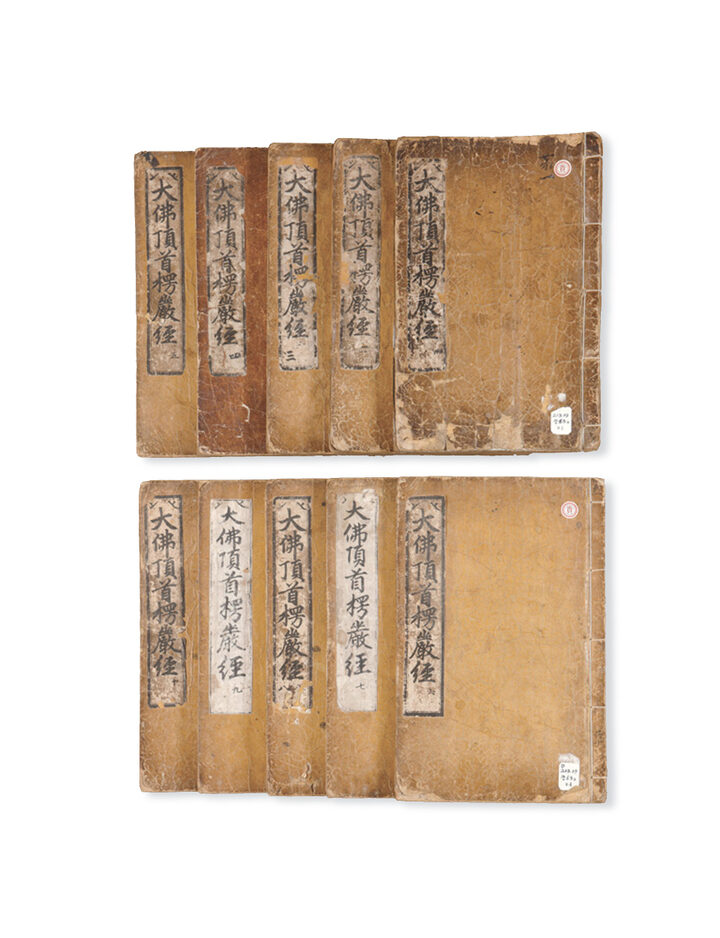 大佛頂首楞嚴經
大佛頂首楞嚴經 二
大佛頂首楞嚴經 三
大佛頂首楞嚴經 四
大佛頂首楞嚴經 五
大佛頂首楞嚴經 六
大佛頂首楞嚴經 七
大佛頂首楞嚴經
大佛頂首楞嚴經 九
大佛頂首楞嚴經 十